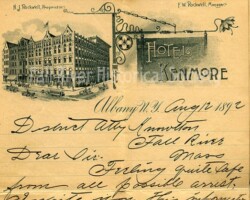 H.J. Rockwell, Proprietor.
F.W. Rockwell, Manager.
HOTEL
KENMORE
Albany N.Y. Aug 12 1892
District Atty Knowlton
Fall River
Mass
Dear Sir.
Feeling quite safe
from all possible arrest,